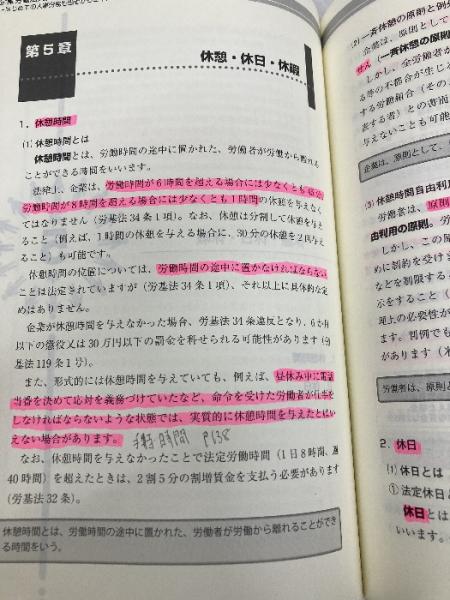 第5章
休憩・休日・休暇
1. 休憩時間
(1) 休憩時間とは
休憩時間とは、労働時間の途中に置かれた、労働者が労働から離れる
ことができる時間をいいます。
法律上、企業は、労働時間が6時間を超える場合には少なくとも
労働時間が8時間を超える場合には少なくとも1時間の休憩を与えなく
てはなりません(労基法34条1項)。なお、休憩は分割して休憩を与え
ること(例えば、1時間の休憩を与える場合に、30分の休憩を2回与え
ること)も可能です。
休憩時間の位置については、労働時間の途中に置かなければならない
ことは法定されていますが(労基法34条1項)、それ以上に具体的な定
めはありません。
企業が休憩時間を与えなかった場合、労基法34条違反となり、6か月
以下の懲役又は30万円以下の罰金を科せられる可能性があります(労
基法119条1号)。
また、形式的には休憩時間を与えていても、例えば、昼休み中に電話
当番を決めて応対を義務づけていたなど、命令を受けた労働者が仕事を
しなければならないような状態では、実質的に休憩時間を与えたとはい
えない場合があります。
時間 P138
なお、休憩時間を与えなかったことで法定労働時間(1日8時間、週
40時間)を超えたときは、2割5分の割増賃金を支払う必要があります
(労基法32条)。
休憩時間とは、労働時間の途中に置かれた、労働者が労働から離れることができ
る時間をいう。
(2) 一斉休憩の原則と例
企業は、原則として
せん(一斉休憩の原則
しかし、全労働者が
る等の不都合が生じる
する労働組合(その
表する者)との書面
与えないことも可能
企業は、原則として、
(3) 休憩時間自由利
労働者は、原
由利用の原則。
しかし、この原
めに制約を受け
などを制限する
示をすること(
理上の必要性が
ます。判例でも
があります(
労働者は、原則と
2. 休日
(1) 休日とは
① 法定休日
休日とは
いいます。